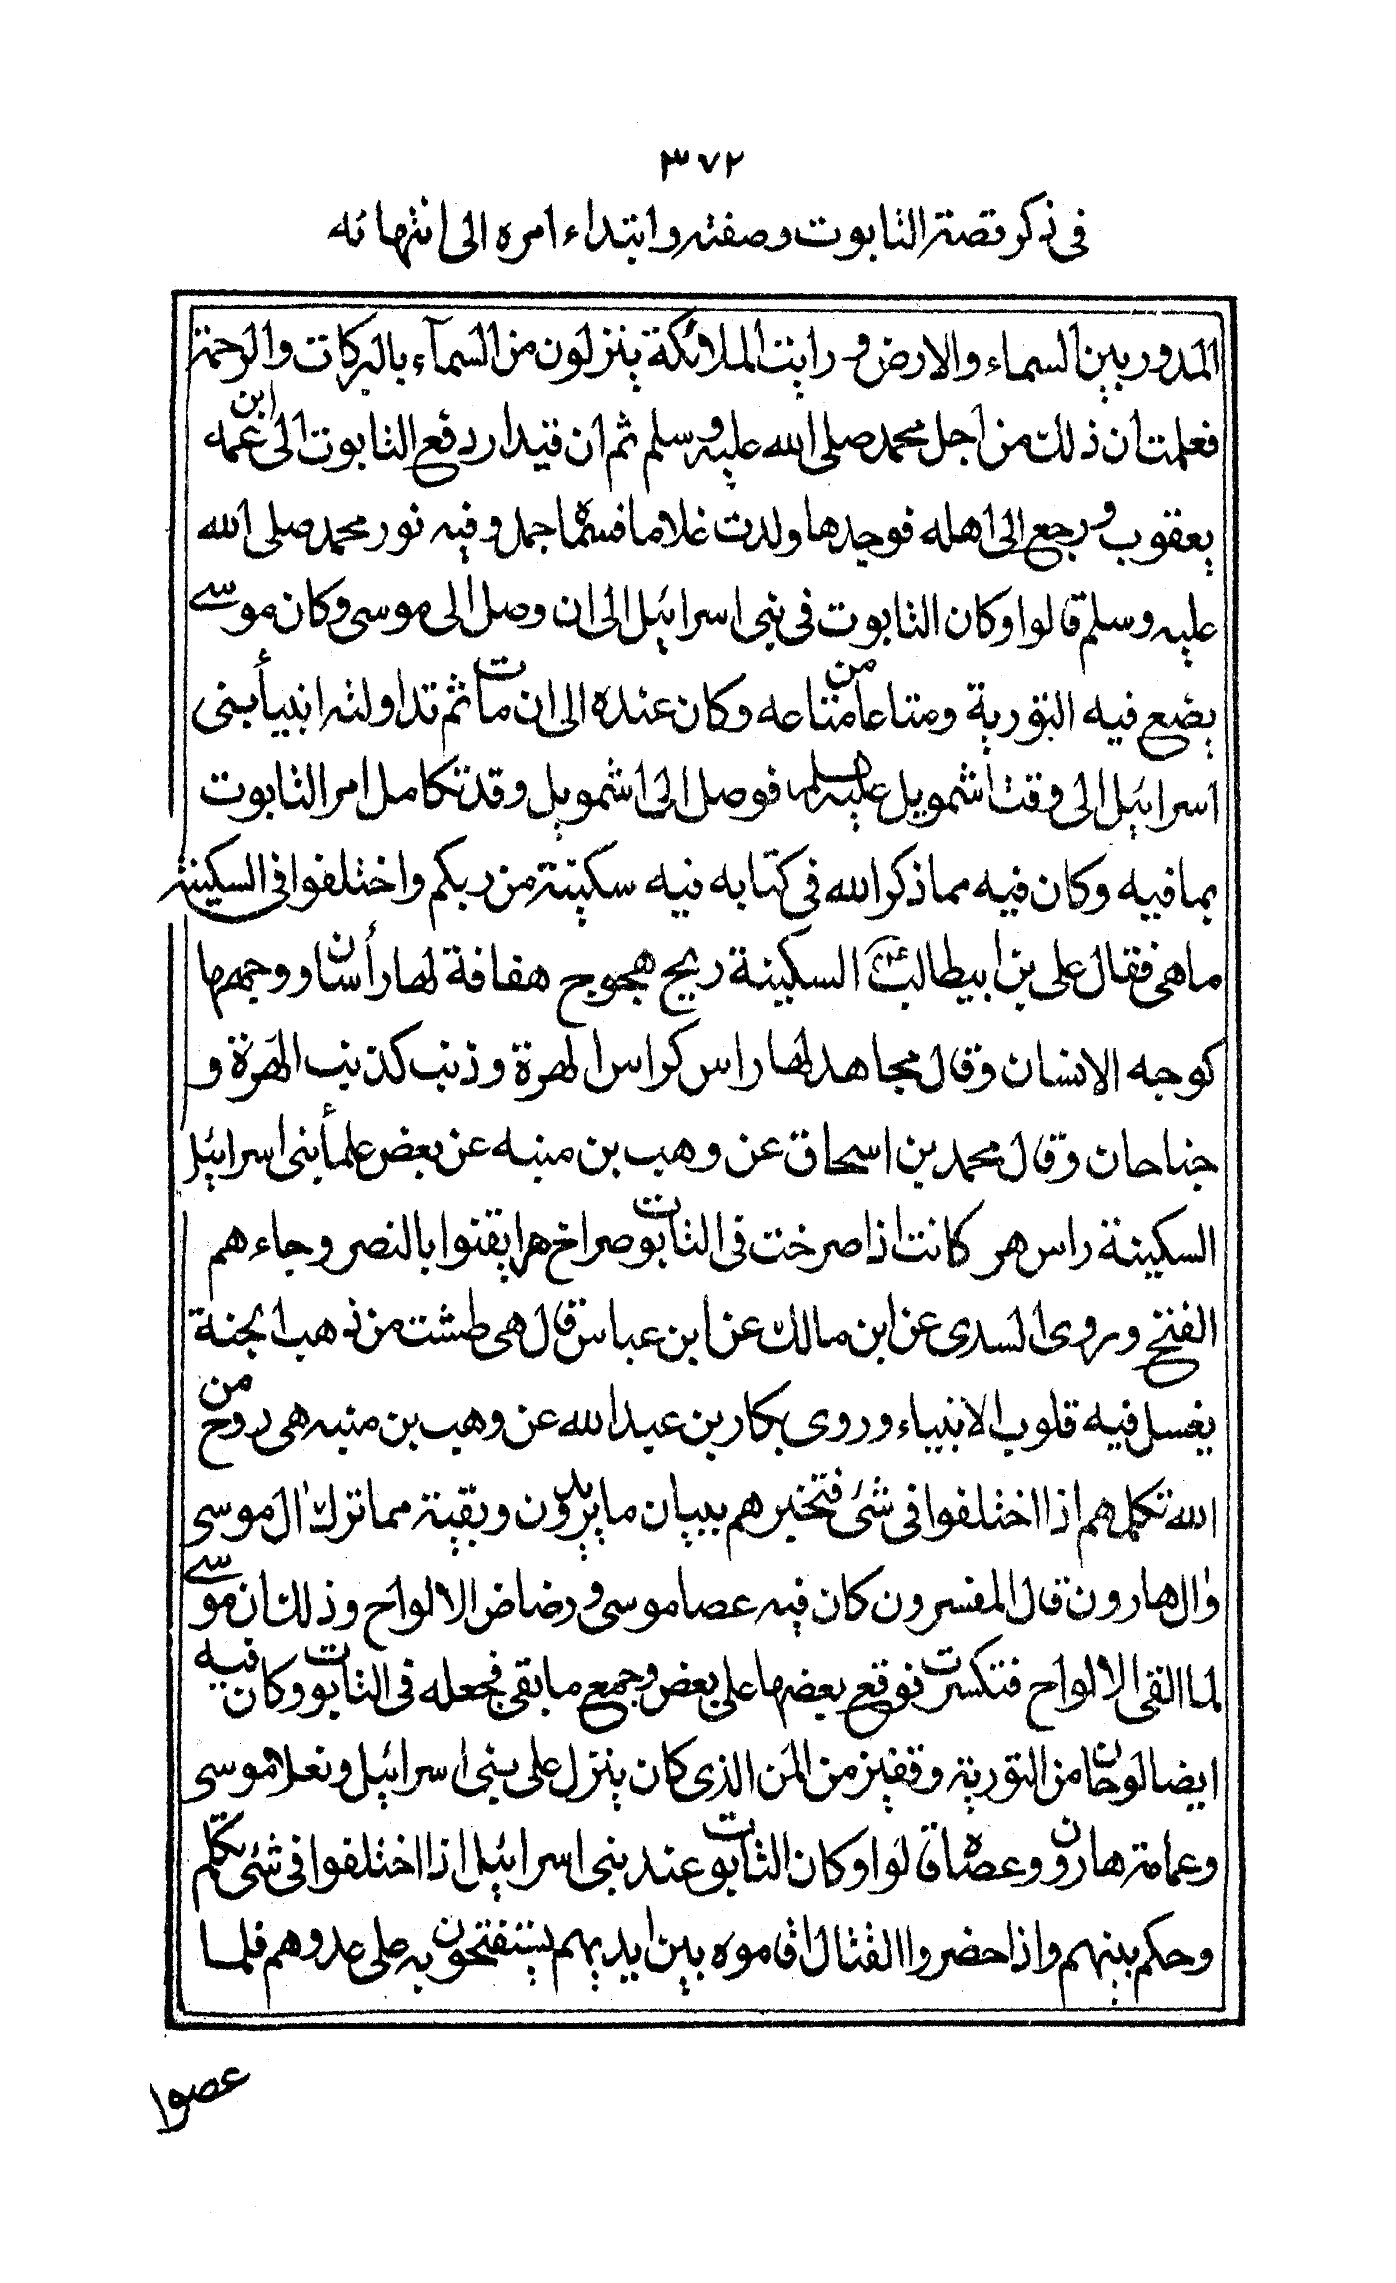 ٣٧٢
فى ذكر قصة التابوت وصفته وابتداء امره الى انتهائه
المدور بين السماء والارض ورايت الملائكة ينزلون من السمآء بالبركات والرحمة
فعلمت ان ذلك من اجل محمد صلى الله عليه وسلم ثم ان قيدار دفع التابوت الى ابن عمه
يعقوب ورجع الى اهله فوجدها ولدت غلاما فسماه حمد وفيه نور محمد صلى الله
عليه وسلم قالوا وكان التابوت فى بنى اسرائيل الى ان وصل الى موسى وكان موسى
يضع فيه التورية ومتاعا من متاعه وكان عنده الى ان مات ثم تداولته انبيأ بنى
اسرائيل الى وقت أشمويل عليه السلم فوصل الى اشمويل وقد تكامل امر التابوت
بما فيه وكان فيه مما ذكر الله فى كتابه فيه سكينة من ربكم واختلفوا فى السكينة
ما هى فقال على بن ابيطالب السكينة ريح هجوج هفافة لها رأسان ووجهها
كوجه الانسان وقال مجاهد لها راس كراس الهرة وذنب كذنب الهرة و
جناحان وقال محمد بن اسحاق عن وهب بن منبه عن بعض علمأ بنى اسرائيل
السكينة راس هر كانت اذا صرخت فى التابوت صراخ هر ايقنوا بالنصر وجاءهم
الفتح وروى السدى عن ابن مالك عن ابن عباس قال هى طشت من ذهب الجنة
يغسل فيه قلوب الانبياء وروى بكار بن عبد الله عن وهب بن منبه هى روح من
الله تكلمهم اذا اختلفوا فى شئ فتخبرهم ببيان ما يريدون وبقية مما ترك ال موسى
وال هارون قال المفسرون كان فيه عصا موسى ورضاض الالواح وذلك ان موسى
لما القى الالواح فتكسرت فوقع بعضها على بعض وجمع ما بقى فجعله فى التابوت وكان فيه
ايضا لوحان من التورية وقفيز من المن الذى كان ينزل على بنى اسرائيل ونعلا موسى
وعمامة هارون وعصاه قالوا وكان التابوت عند بنى اسرائيل اذا اختلفوا فى شئ تكلم
وحكم بينهم واذا حضروا القتال اقاموه بين ايديهم يستفتحون به على عدوهم فلما
عصوا